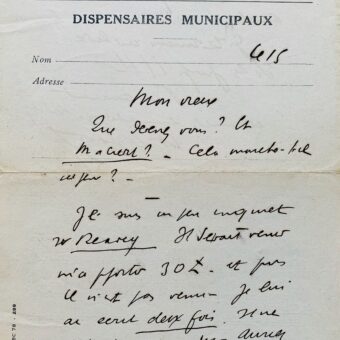 DISPENSAIRES MUNICIPAUX
Nom
le 15
Adresse
Mon vieux
Que devenez vous ? Et
? _ Cela marche-t-il
un peu ? _
Je suis un peu inquiet
Il devait venir
m'apporter 30 £ _ et puis
il n'est pas venu _ Je lui
ai écrit deux fois. Il ne